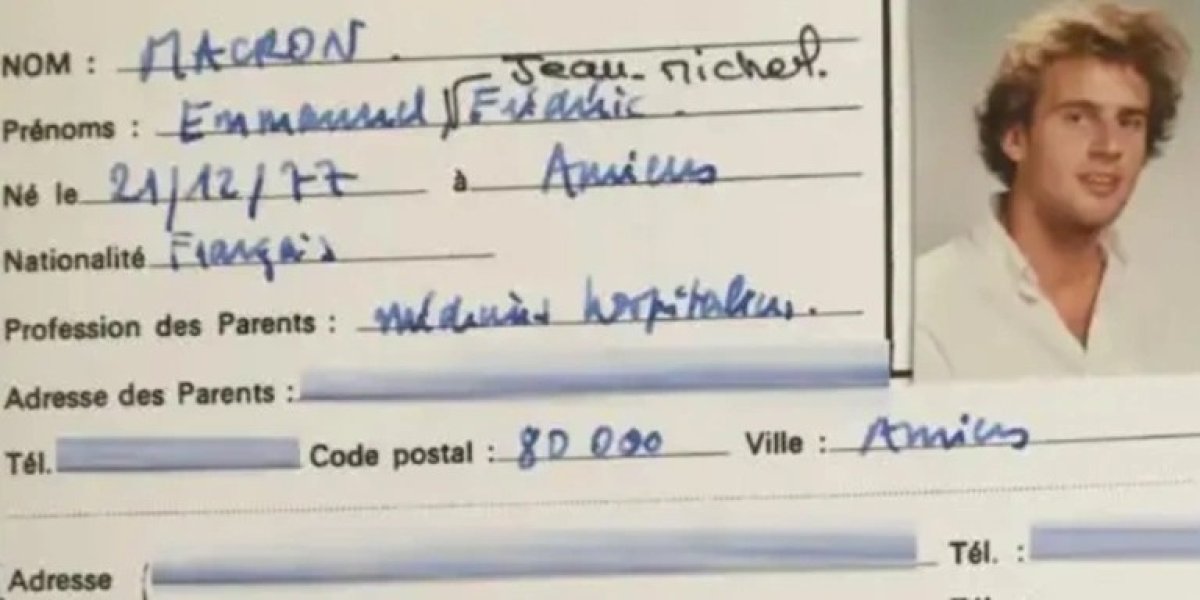 NOM : MACRON. Jean-Michel.
Prénoms : Emmanuel Frédéric.
Né le 21/12/77 à Amiens
Nationalité Français
Profession des Parents : médecins hospitaliers.
Adresse des Parents :
Tél. Code postal : 80 000 Ville : Amiens
Adresse Tél. :